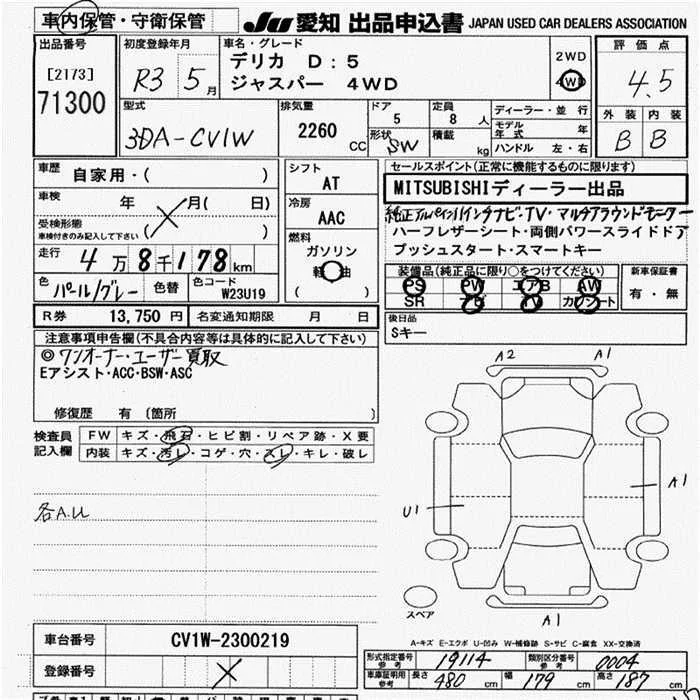 車内保管・守衛保管
JU 愛知 出品申込書 JAPAN USED CAR DEALERS ASSOCIATION
出品番号 [2173] 71300
初度登録年月 R3 5月
車名・グレード
デリカ D:5
ジャスパー 4WD
2WD
4WD
評価点 4.5
外装 内装
B B
型式 3DA-CV1W
排気量 2260 CC
ドア 5
形状 SW
定員 8 人
積載 kg
ディーラー・並行
モデル年式 年
ハンドル 左・右
車歴 自家用・( )
車検 年 月( 日)
受検形態
車検付きのみ記入して下さい ( )
走行 4万8千178km
色 パール/グレー 色替 色コード W23U19
シフト AT
冷房 AAC
燃料
ガソリン
軽油
( )
セールスポイント(正常に機能するものに限ります)
MITSUBISHIディーラー出品
純正アルパイン11インチナビ・TV・マルチアラウンドモニター
ハーフレザーシート・両側パワースライドドア
プッシュスタート・スマートキー
装備品(純正品に限り○をつけてください)
PS PW エアB AW
SR ナビ TV カワシート
新車保証書
有・無
R券 13,750円 名変通知期限 月 日
後日品
Sキー
注意事項申告欄(不具合内容等は具体的に記入して下さい)
◎ワンオーナー・ユーザー買取
Eアシスト・ACC・BSW・ASC
修復歴 有 〔箇所 〕
検査員記入欄
FW キズ・飛石・ヒビ割・リペア跡・X要
内装 キズ・汚レ・コゲ・穴・スレ・キレ・破レ
各A.U
A2 A1
A1
U1
A1
スペア
A-キズ E-エクボ U-凹み W-補修跡 S-サビ C-腐食 XX-交換済
車台番号 CV1W-2300219
登録番号
形式指定番号 参考 19114 類別区分番号 参考 0004
車庫証明用 参考 長さ 480 cm 幅 179 cm 高さ 187 cm